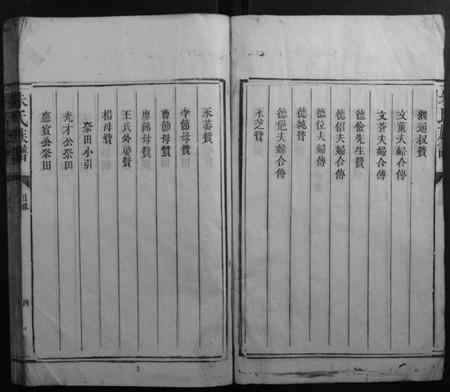 文薰夫婦合傳
文蒼夫婦合傳
德儉先生贊
德紹夫婦合傳
德位夫婦傳
德純贊
德他夫婦合傳
永芝贊
永蕃贊
李節母贊
曹節母贊
廖節母贊
王氏外舉贊
楊母贊
祭田小引
光才公祭田
應宜公祭田
朱氏族譜
目錄
四